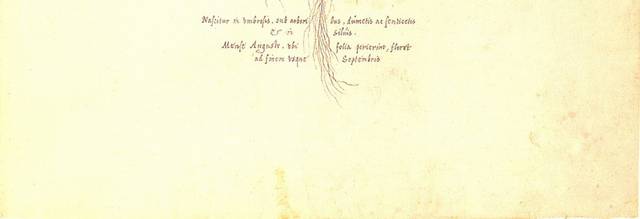 Nascitur in vmbrosis, sub arboribus, dumetis ac senticetis
& in siluis.
Mense Augusto, vbi folia perierint, floret
ad finem vsque Septembris